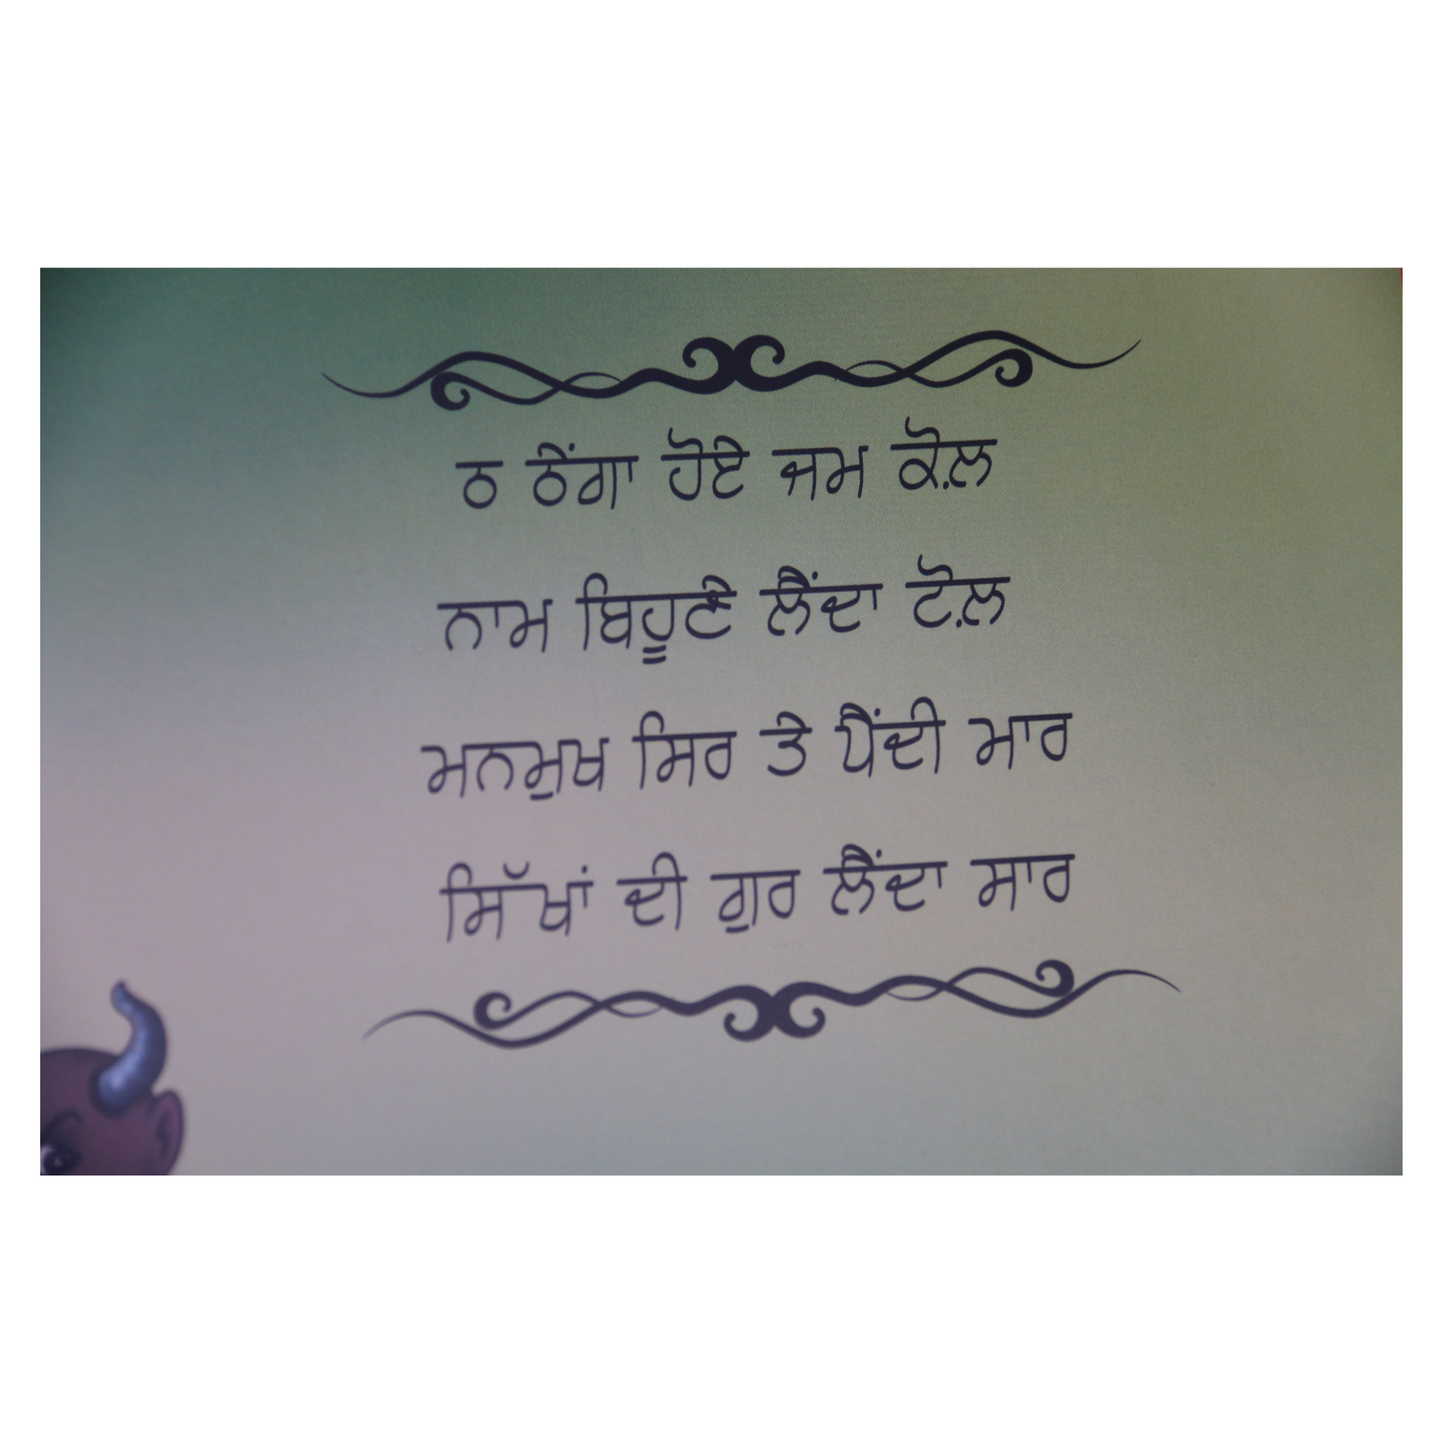 ਠ ਠੇਂਗਾ ਹੋਏ ਜਮ ਕੋਲ਼
ਨਾਮ ਬਿਹੂਣੇ ਲੈਂਦਾ ਟੋਲ਼
ਮਨਮੁਖ ਸਿਰ ਤੇ ਪੈਂਦੀ ਮਾਰ
ਸਿੱਖਾਂ ਦੀ ਗੁਰ ਲੈਂਦਾ ਸਾਰ